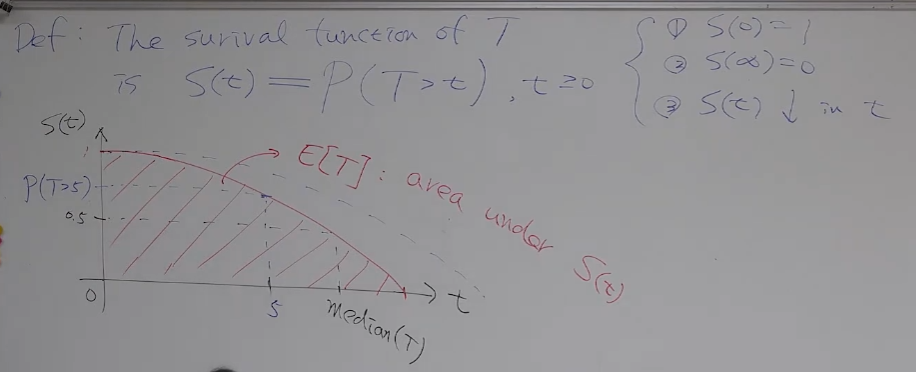 Def: The surival function of T
is S(t) = P(T>t), t≥0
① S(0)=1
② S(∞)=0
③ S(t) ↓ in t
S(t)
1
P(T>5)
0.5
0
5
Median(T)
t
E[T]: area under S(t)